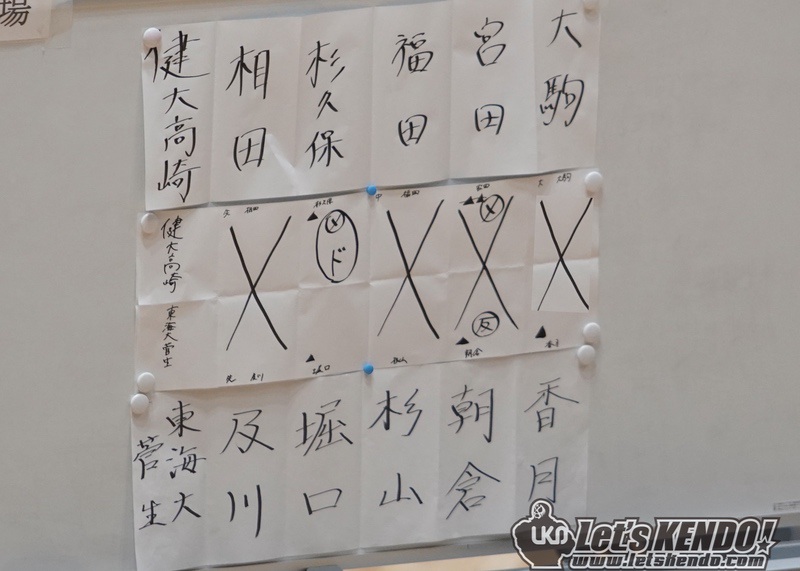 場
健大高崎
相田
杉久保
福田
宮田
大駒
健大高崎
先 相田
杉久保
中 福田
宮田
大 大駒
メ
メド
反
東海大菅生
先 及川
堀口
杉山
朝倉
香月
東海大
菅生
及川
堀口
杉山
朝倉
香月
UKN Let's KENDO!
www.letskendo.com